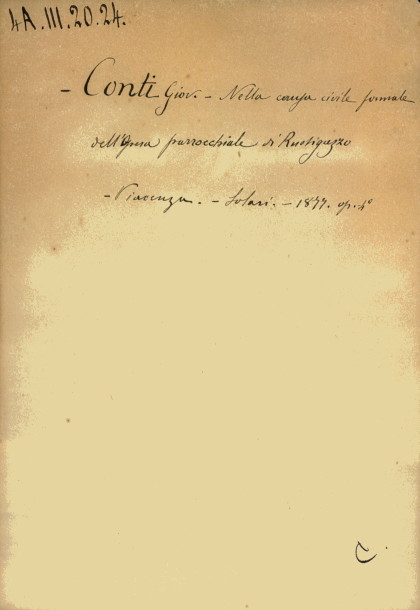 4A.III.20.24.
- Conti Giov. - Nella causa civile formale
dell'Opera parrocchiale di Rustigazzo
- Piacenza. - Solari. - 1877. op. 4°
C.